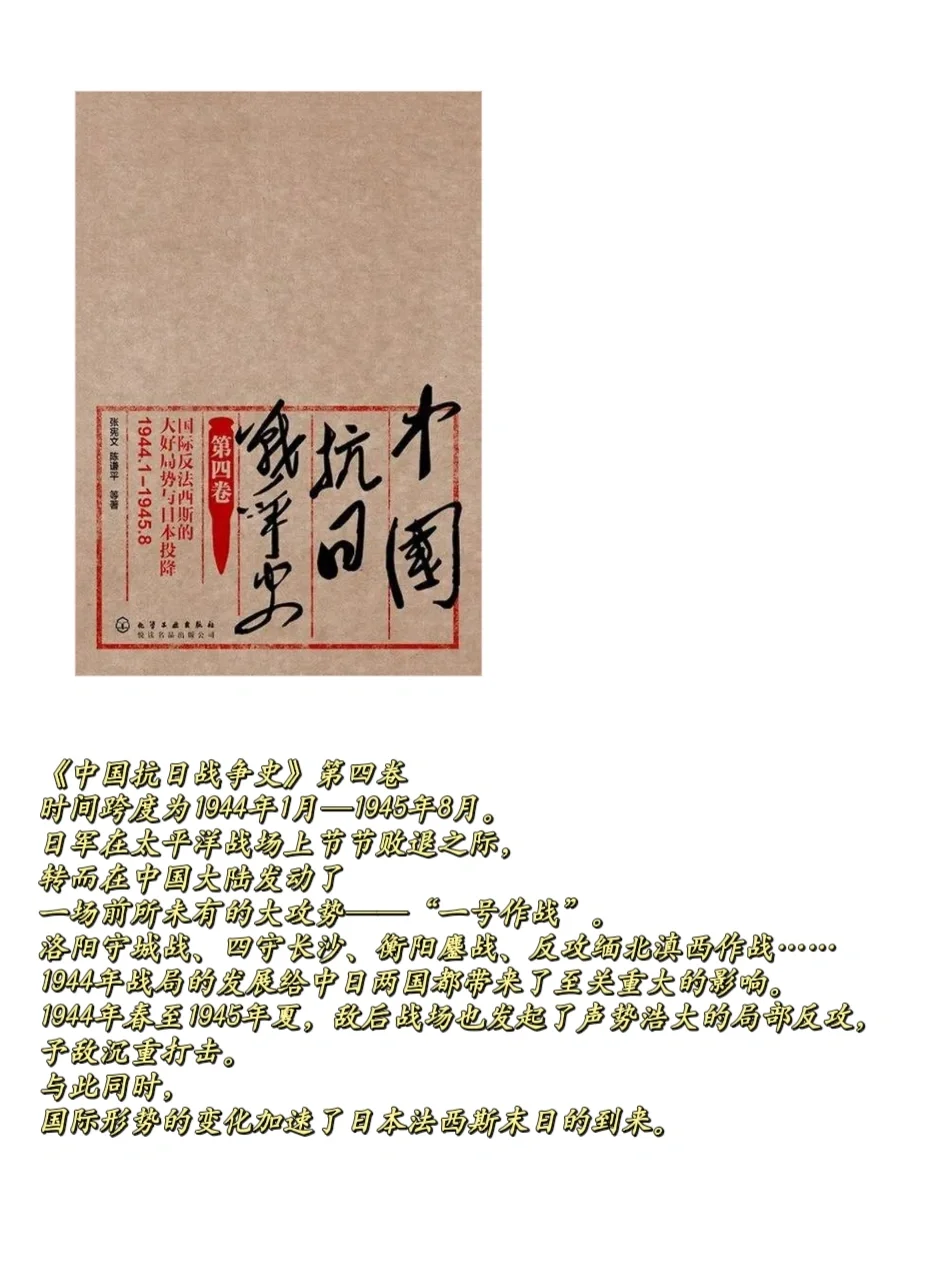 中國
抗日
戰爭史
第四卷
国际反法西斯的
大好局势与日本投降
1944.1-1945.8
张宪文 陈谦平 等著
化学工业出版社
悦读名品出版公司
《中国抗日战争史》第四卷
时间跨度为1944年1月—1945年8月。
日军在太平洋战场上节节败退之际，
转而在中国大陆发动了
一场前所未有的大攻势——“一号作战”。
洛阳守城战、四守长沙、衡阳鏖战、反攻缅北滇西作战……
1944年战局的发展给中日两国都带来了至关重大的影响。
1944年春至1945年夏，敌后战场也发起了声势浩大的局部反攻，
予敌沉重打击。
与此同时，
国际形势的变化加速了日本法西斯末日的到来。